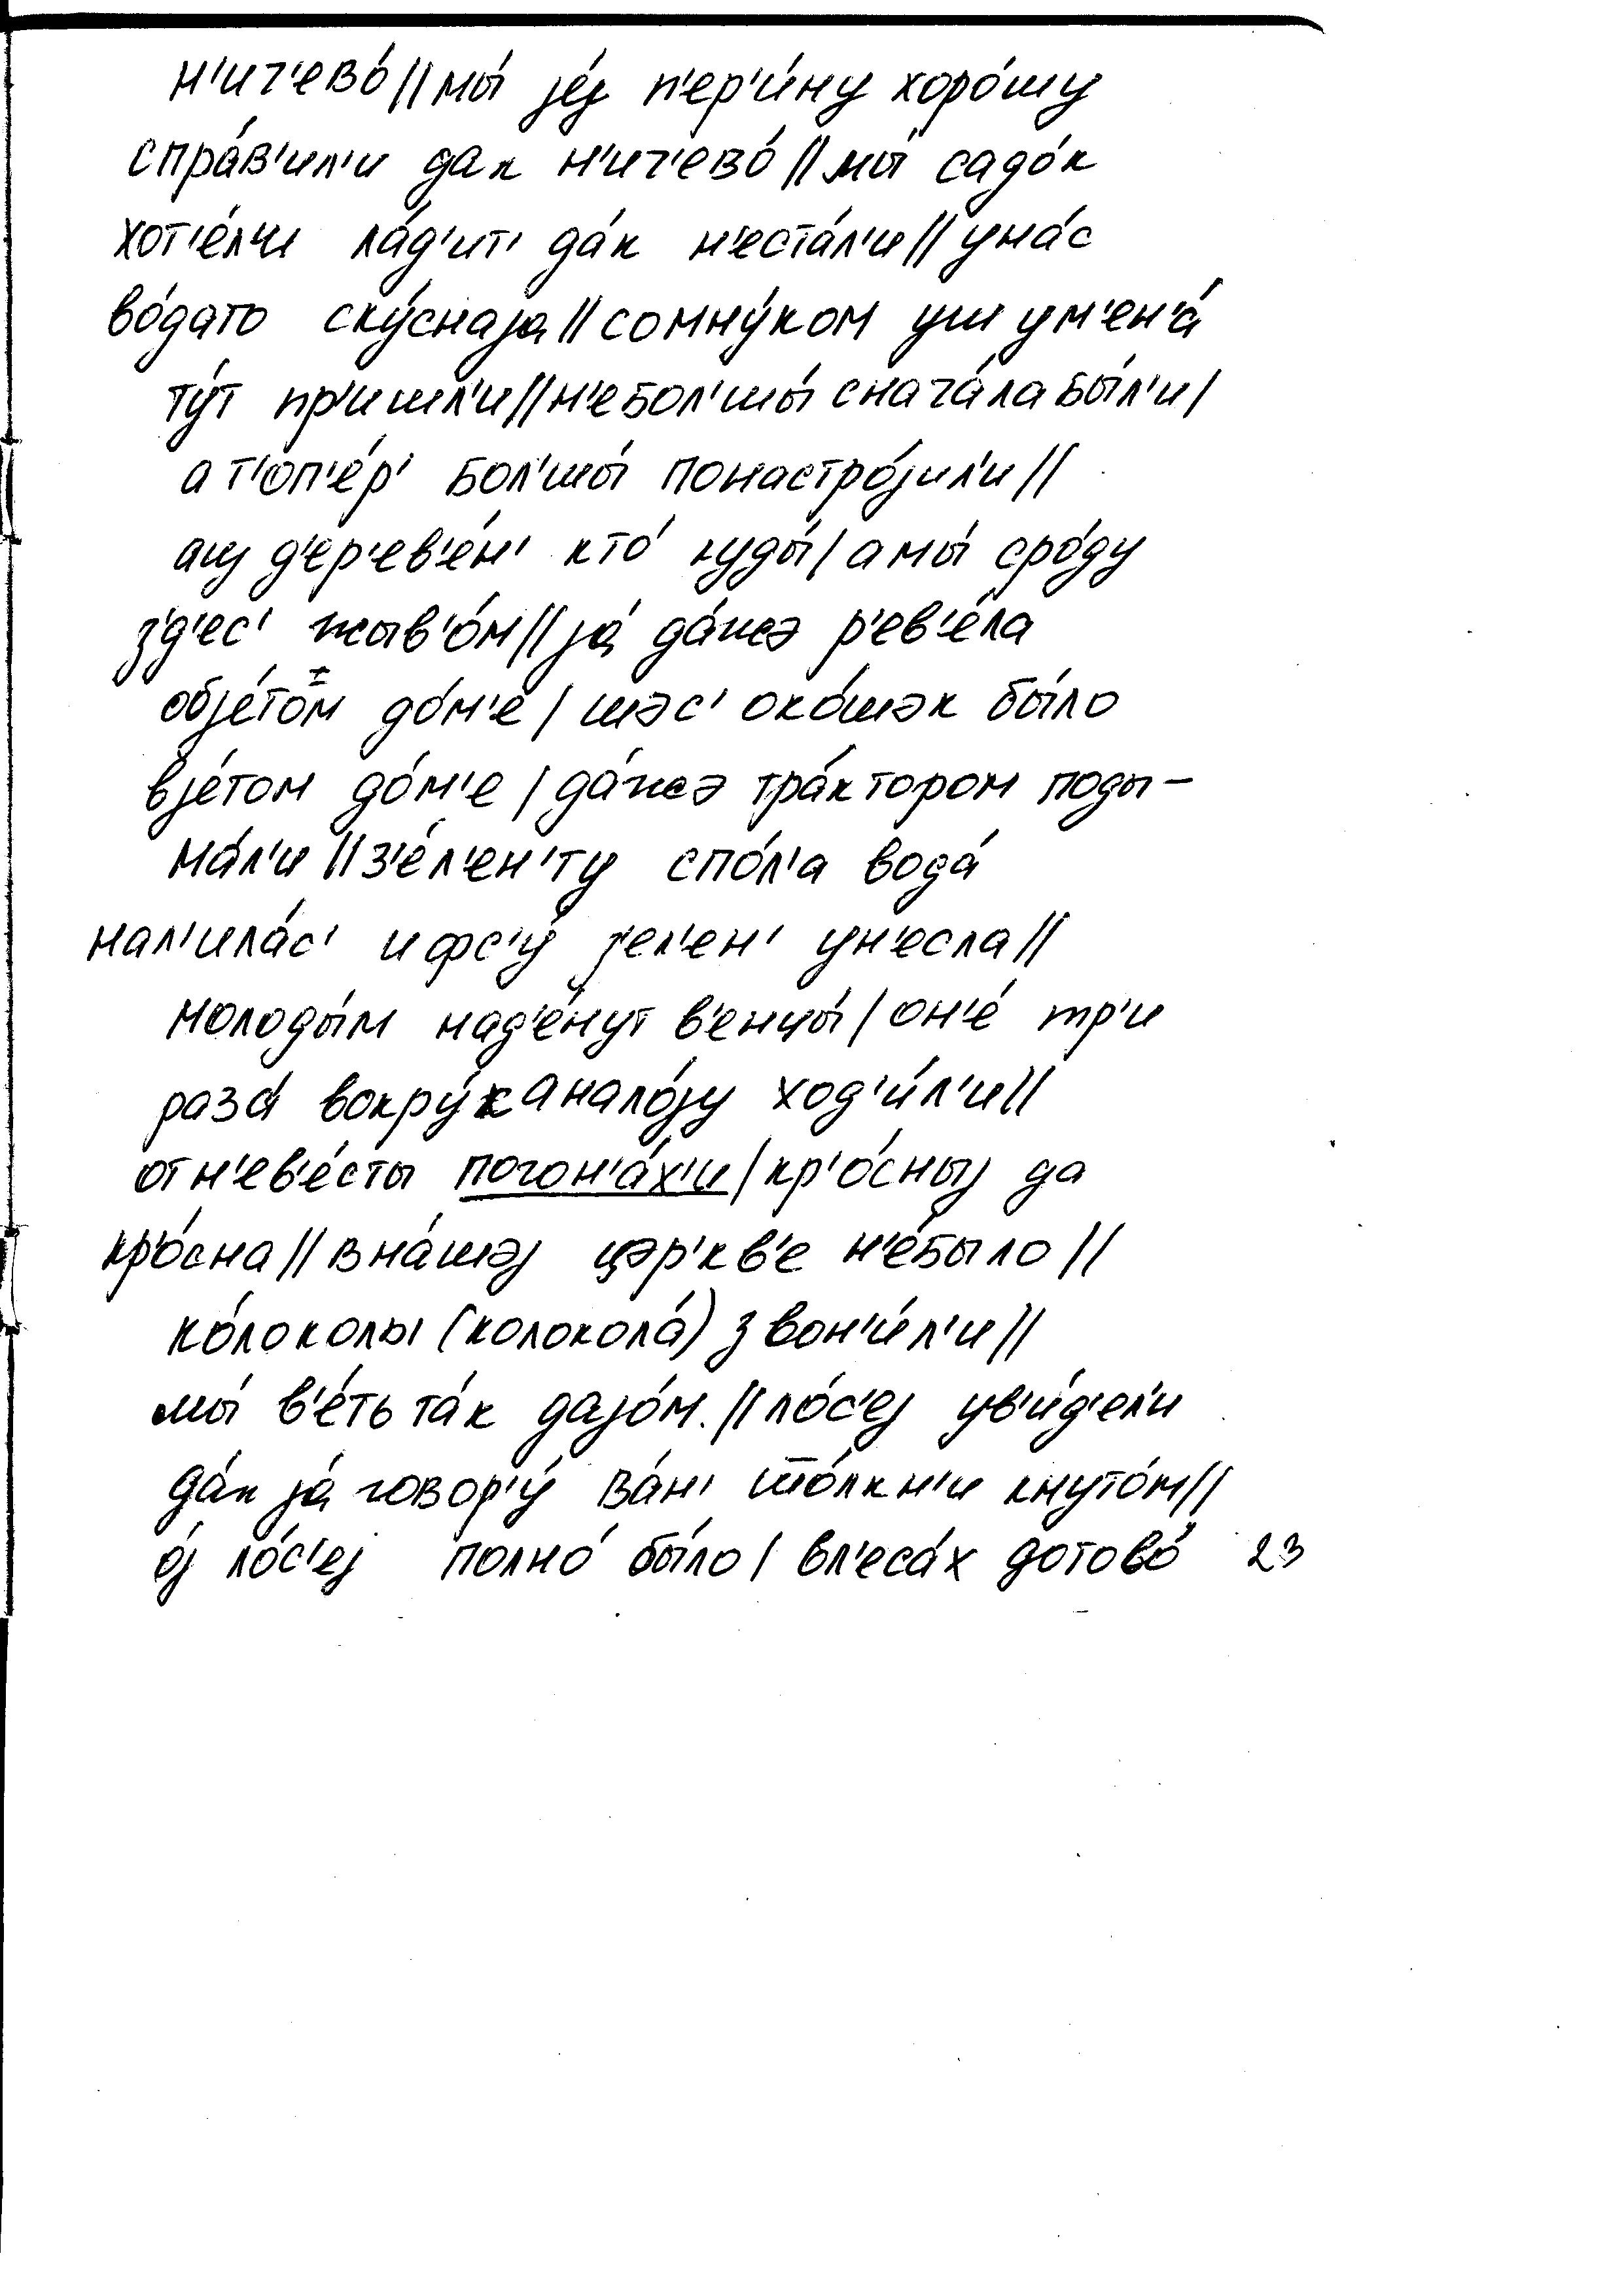 н'ич'ево́ // мы́ jе́j п'ер'и́ну хоро́шу
спра́в'ил'и дак н'ич'ево́ // мы́ садо́к
хот'е́л'и ла́д'ит' да́к н'еста́л'и // уна́с
во́дато ску́снаjа // сомну́ком уш ум'ен'а́
ту́т пр'ишл'и // н'ебол'шы́ снача́ла бы́л'и /
а т'оп'е́р' бол'шы́ понастро́jил'и //
аиз д'ер'ев'е́н' кто́ куды́ / а мы́ сро́ду
з'д'ес' жыв'о́м // jа́ да́жэ р'ев'е́ла
обjе́том до́м'е / шэс' око́шэк бы́ло
вjе́том до́м'е / да́жэ тра́ктором поды-
ма́л'и // з'е́л'ен'ту спо́л'а вода́
нал'ила́с' ифс'у́ з'ел'ен' ун'есла //
молоды́м над'е́нут в'енцы́ / он'е́ тр'и
раза́ вокру́к анало́jу ход'и́л'и //
от н'ев'е́сты погон'а́х'и / кр'о́сныj да
кр'о́сна // вна́шэj цэр'кв'е н'е́было //
ко́локолы (колокола́) звон'и́л'и //
мы́ в'е́ть та́к даjо́м. // ло́с'еj ув'и́д'ел'и
да́к jа́ говор'у́ ва́н' то́лкн'и кнуто́м //
о́j ло́с'еj полно́ бы́ло / вл'еса́х дотово́ 23